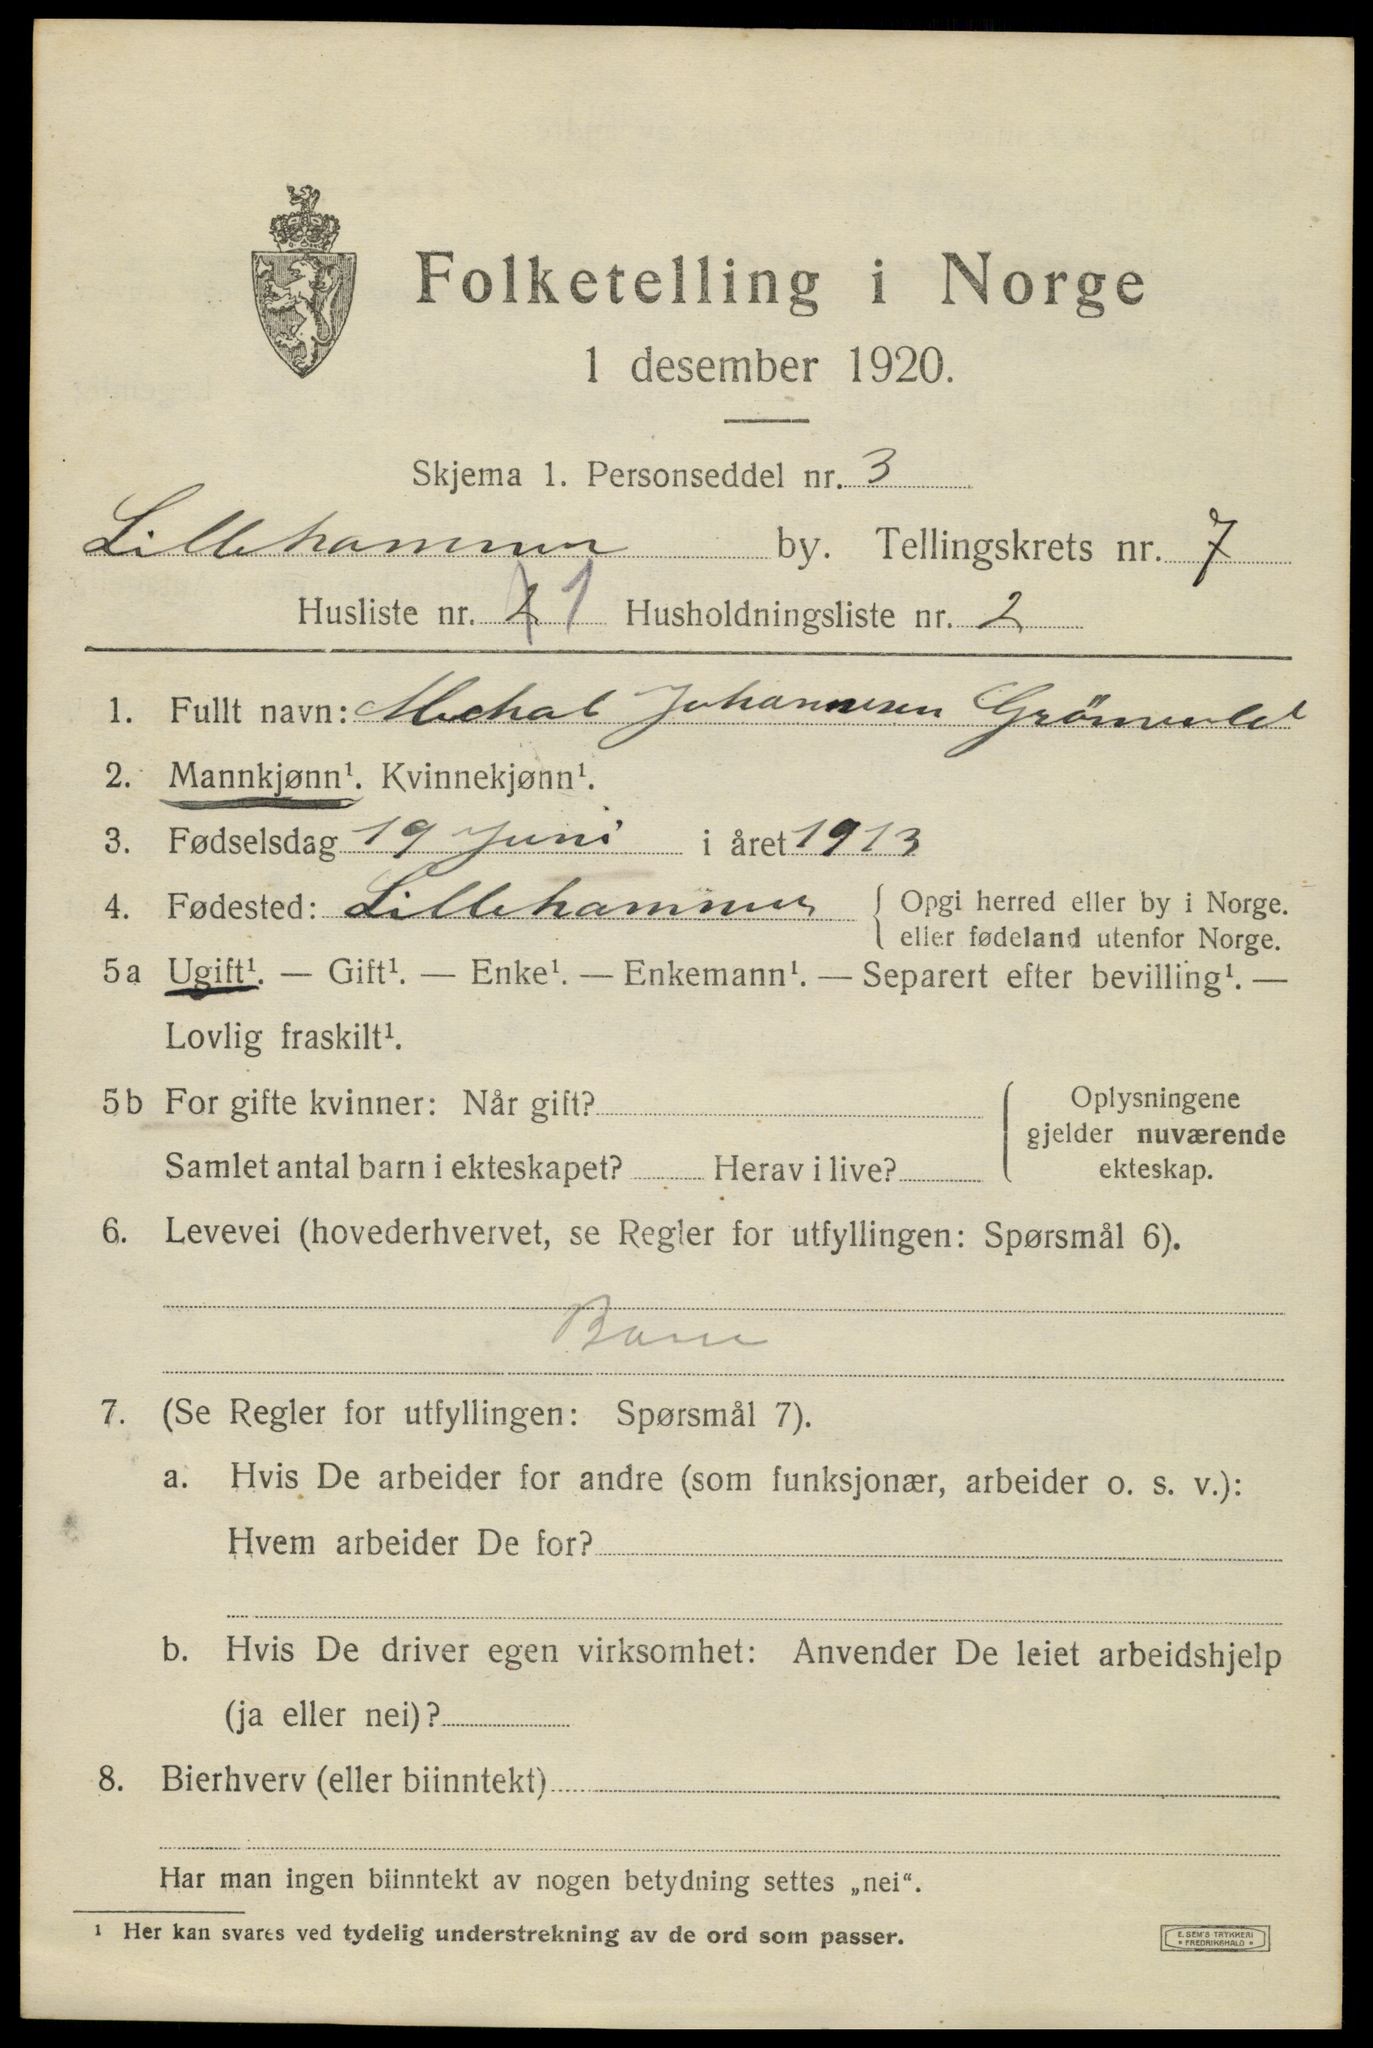 Folketelling i Norge
1 desember 1920.
Skjema 1. Personseddel nr. 3
Lillehammer by. Tellingskrets nr. 7
Husliste nr. 1 Husholdningsliste nr. 2
1. Fullt navn: Johannesen
2. Mannkjønn¹. Kvinnekjønn¹.
3. Fødselsdag 19 Juni i året 1913
4. Fødested: Lillehammer { Opgi herred eller by i Norge.
eller fødeland utenfor Norge.
5a Ugift¹. — Gift¹. — Enke¹. — Enkemann¹. — Separert efter bevilling¹. —
Lovlig fraskilt¹.
5b For gifte kvinner: Når gift?
Samlet antal barn i ekteskapet? Herav i live?
Oplysningene
gjelder nuværende
ekteskap.
6. Levevei (hovederhvervet, se Regler for utfyllingen: Spørsmål 6).
Barn
7. (Se Regler for utfyllingen: Spørsmål 7).
a. Hvis De arbeider for andre (som funksjonær, arbeider o. s. v.):
Hvem arbeider De for?
b. Hvis De driver egen virksomhet: Anvender De leiet arbeidshjelp
(ja eller nei)?
8. Bierhverv (eller biinntekt)
Har man ingen biinntekt av nogen betydning settes „nei“.
¹ Her kan svares ved tydelig understrekning av de ord som passer.
E. SEM'S TRYKKERI
FREDRIKSHALD